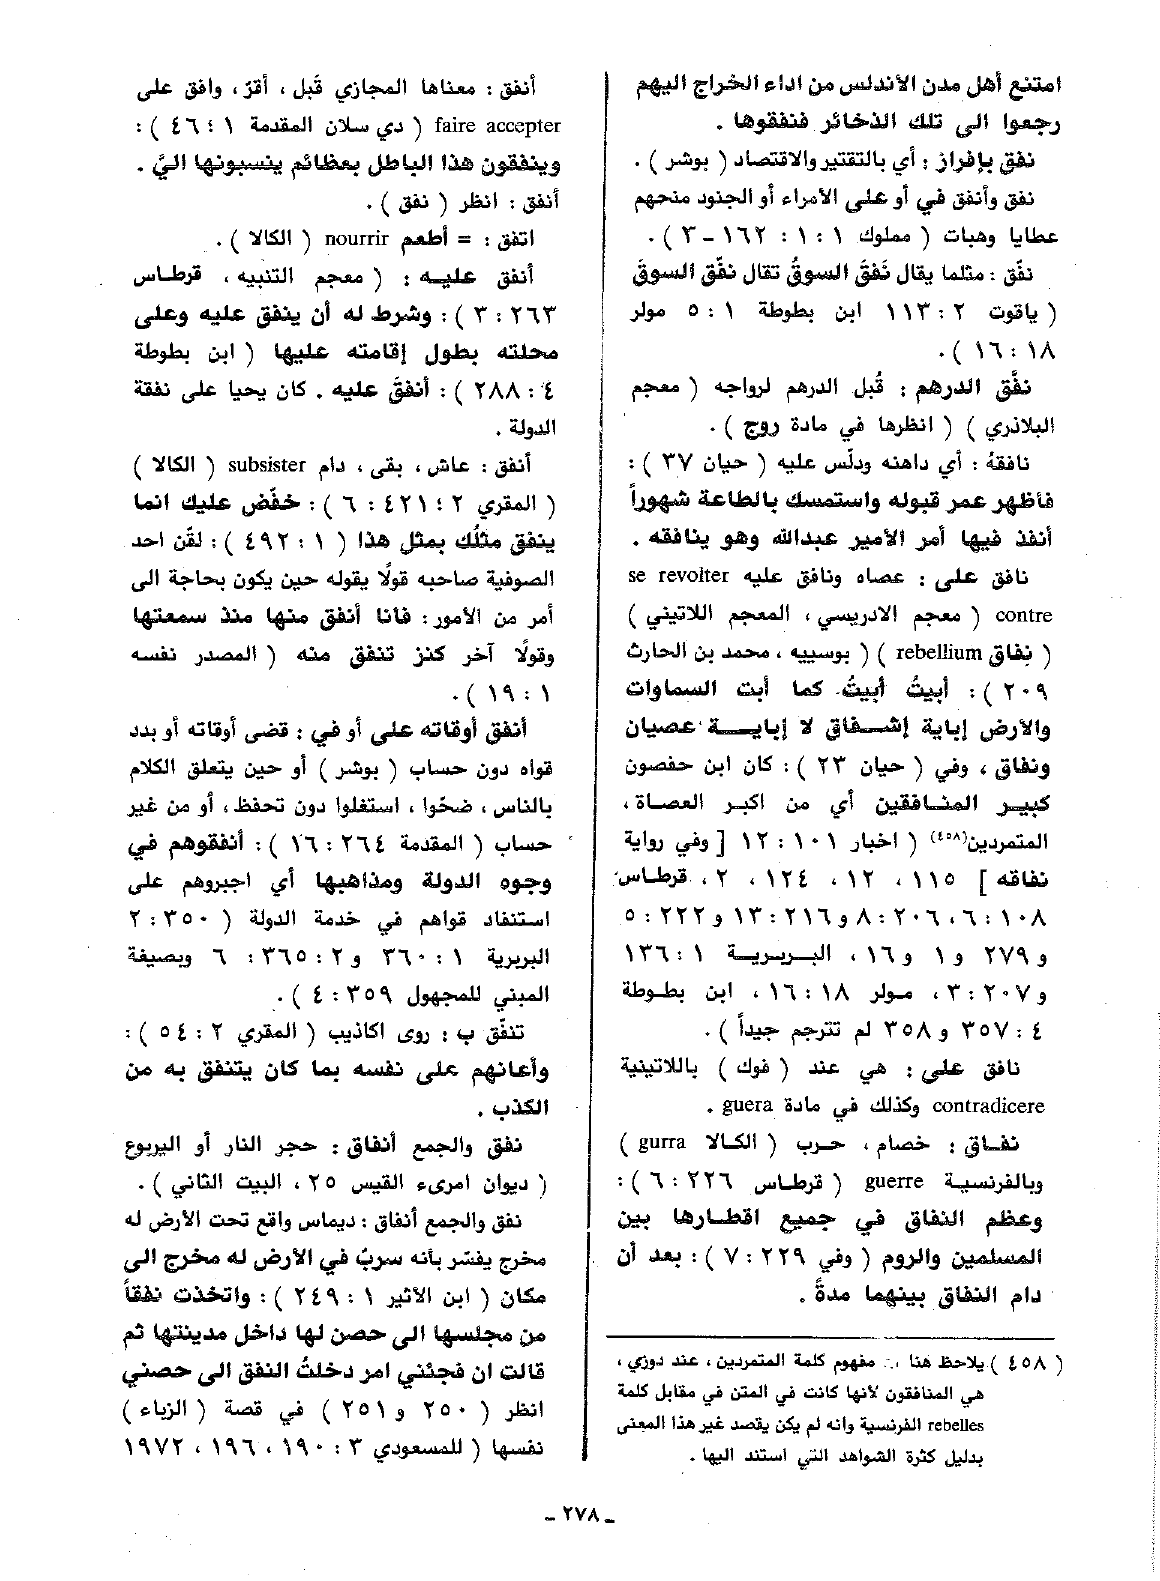 امتنع أهل مدن الأندلس من اداء الخراج اليهم
رجعوا الى تلك الذخائر فنفقوها .
نفق بإفراز : أي بالتقتير والاقتصاد ( بوشر ) .
نفق وأنفق في أو على الأمراء أو الجنود منحهم
عطايا وهبات ( مملوك ١ : ١ : ١٦٢ - ٣ ) .
نفّق : مثلما يقال نَفَقَ السوقُ تقال نفّق السوقَ
( ياقوت ٢ : ١١٣ ابن بطوطة ١ : ٥ مولر
١٨ : ١٦ ) .
نفَّق الدرهم : قُبل الدرهم لرواجه ( معجم
البلاذري ) ( انظرها في مادة روج ) .
نافقهُ : أي داهنه ودلّس عليه ( حيان ٣٧ ) :
فأظهر عمر قبوله واستمسك بالطاعة شهوراً
أنفذ فيها أمر الأمير عبدالله وهو ينافقه .
نافق على : عصاه ونافق عليه se revolter
contre ( معجم الادريسي ، المعجم اللاتيني )
( نِفاق rebellium ) ( بوسييه ، محمد بن الحارث
٢٠٩ ) : أبيتُ أبيتُ كما أبت السماوات
والأرض إباية إشفاق لا إباية عصيان
ونفاق ، وفي ( حيان ٢٣ ) : كان ابن حفصون
كبير المنافقين أي من اكبر العصاة ،
المتمردين(٤٥٨) ( اخبار ١٠١ : ١٢ [ وفي رواية
نفاقه ] ١١٥ ، ١٢ ، ١٢٤ ، ٢ ، قرطاس
١٠٨ : ٦ ، ٢٠٦ : ٨ و ٢١٦ : ١٣ و ٢٢٢ : ٥
و ٢٧٩ و ١ و ١٦ ، البربرية ١ : ١٣٦
و ٢٠٧ : ٣ ، مولر ١٨ : ١٦ ، ابن بطوطة
٤ : ٣٥٧ و ٣٥٨ لم تترجم جيداً ) .
نافق على : هي عند ( فوك ) باللاتينية
contradicere وكذلك في مادة guera .
نفاق : خصام ، حرب ( الكالا gurra )
وبالفرنسية guerre ( قرطاس ٢٢٦ : ٦ ) :
وعظم النفاق في جميع اقطارها بين
المسلمين والروم ( وفي ٢٢٩ : ٧ ) : بعد أن
دام النفاق بينهما مدةً .
( ٤٥٨ ) يلاحظ هنا مفهوم كلمة المتمردين ، عند دوزي ،
هي المنافقون لأنها كانت في المتن في مقابل كلمة
rebelles الفرنسية وانه لم يكن يقصد غير هذا المعنى
بدليل كثرة الشواهد التي استند اليها .
أنفق : معناها المجازي قَبل ، أقرّ ، وافق على
faire accepter ( دي سلان المقدمة ١ : ٤٦ ) :
وينفقون هذا الباطل بعظائم ينسبونها اليَّ .
أنفق : انظر ( نفق ) .
اتفق : = أطعم nourrir ( الكالا ) .
أنفق عليه : ( معجم التنبيه ، قرطاس
٢٦٣ : ٣ ) : وشرط له أن ينفق عليه وعلى
محلته بطول إقامته عليها ( ابن بطوطة
٤ : ٢٨٨ ) : أنفقَ عليه . كان يحيا على نفقة
الدولة .
أنفق : عاش ، بقى ، دام subsister ( الكالا )
( المقري ٢ : ٤٢١ : ٦ ) : خفّض عليك انما
ينفق مثلُك بمثل هذا ( ١ : ٤٩٢ ) : لقّن احد
الصوفية صاحبه قولًا يقوله حين يكون بحاجة الى
أمر من الأمور : فانا أنفق منها منذ سمعتها
وقولًا آخر كنز تنفق منه ( المصدر نفسه
١ : ١٩ ) .
أنفق أوقاته على أو في : قضى أوقاته أو بدد
قواه دون حساب ( بوشر ) أو حين يتعلق الكلام
بالناس ، ضحّوا ، استغلوا دون تحفظ ، أو من غير
حساب ( المقدمة ٢٦٤ : ١٦ ) : أنفقوهم في
وجوه الدولة ومذاهبها أي اجبروهم على
استنفاد قواهم في خدمة الدولة ( ٣٥٠ : ٢
البربرية ١ : ٣٦٠ و ٢ : ٣٦٥ : ٦ وبصيغة
المبني للمجهول ٣٥٩ : ٤ ) .
تنفّق ب : روى اكاذيب ( المقري ٢ : ٥٤ ) :
وأعانهم على نفسه بما كان يتنفق به من
الكذب .
نفق والجمع أنفاق : حجر النار أو اليربوع
( ديوان امرىء القيس ٢٥ ، البيت الثاني ) .
نفق والجمع أنفاق : ديماس واقع تحت الأرض له
مخرج يفسّر بأنه سربٌ في الأرض له مخرج الى
مكان ( ابن الأثير ١ : ٢٤٩ ) : واتخذت نفقاً
من مجلسها الى حصن لها داخل مدينتها ثم
قالت ان فجئني امر دخلتُ النفق الى حصني
انظر ( ٢٥٠ و ٢٥١ ) في قصة ( الزباء )
نفسها ( للمسعودي ٣ : ١٩٠ ، ١٩٦ ، ١٩٧٢
ـ ٢٧٨ ـ